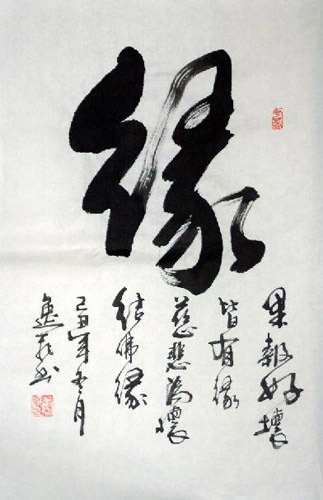 緣
果報好壞
皆有緣
慈悲為懷
結佛緣
己丑年冬月